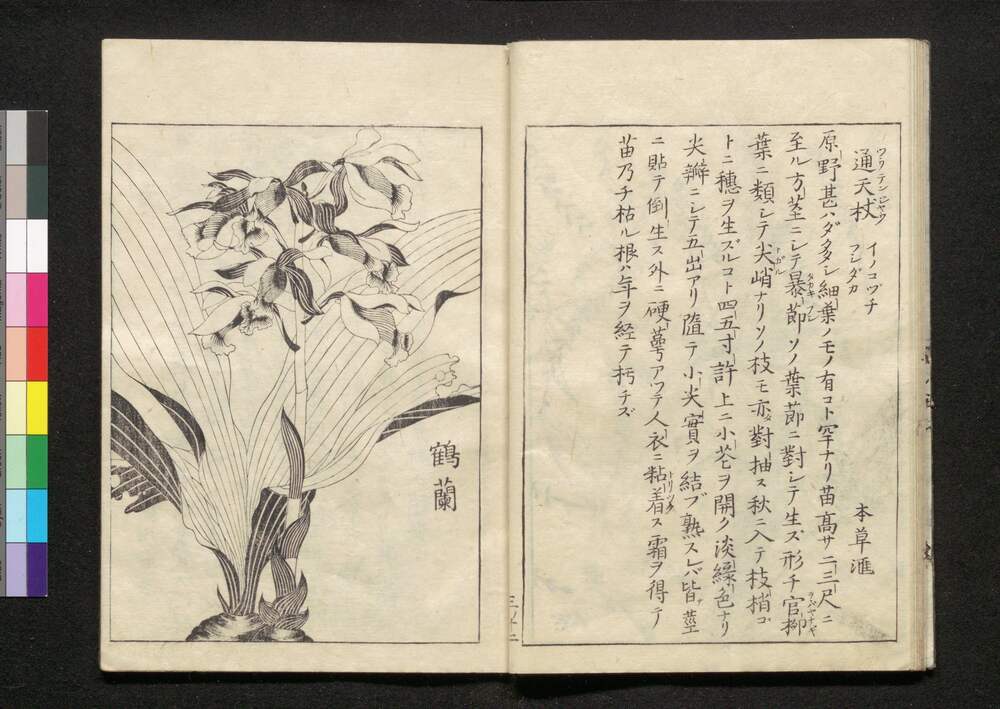 通天杖 イノコヅチ フシダカ 本草滙
ツウテンジャウ
原野甚ハダ多シ細葉ノモノ有コト罕ナリ苗高サ二三尺ニ
至ル方茎ニシテ暴節ソノ葉節ニ對シテ生ズ形チ官柳
葉ニ類シテ尖峭ナリソノ枝モ亦對抽ス秋ニ入テ枝梢ゴ
トニ穗ヲ生ズルコト四五寸許上ニ小花ヲ開ク淡緑色ナリ
尖瓣ニシテ五出アリ隨テ小尖實ヲ結ブ熟スレバ皆茎
ニ貼テ倒生ス外ニ硬萼アツテ人衣ニ粘着ス霜ヲ得テ
苗乃チ枯ル根ハ年ヲ経テ朽チズ
鶴蘭